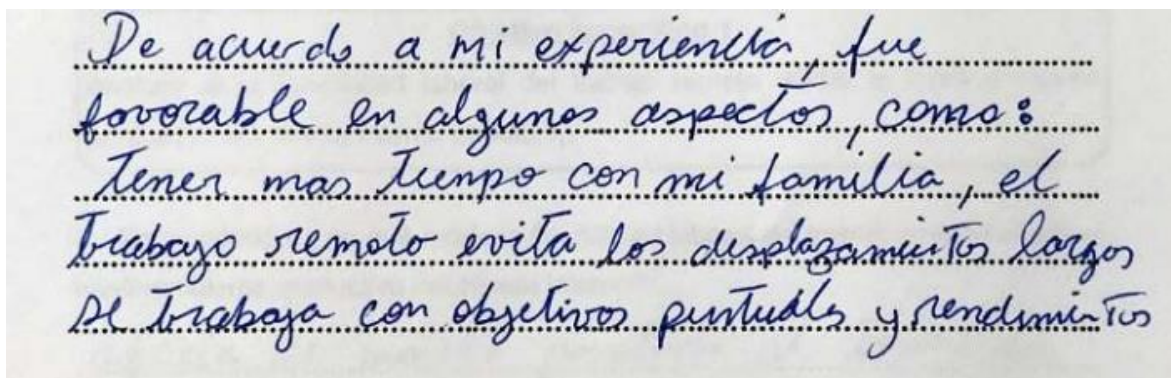 De acuerdo a mi experiencia, fue
favorable en algunos aspectos, como:
Tener mas tiempo con mi familia, el
trabajo remoto evita los desplazamientos largos
se trabaja con objetivos puntuales y rendimientos